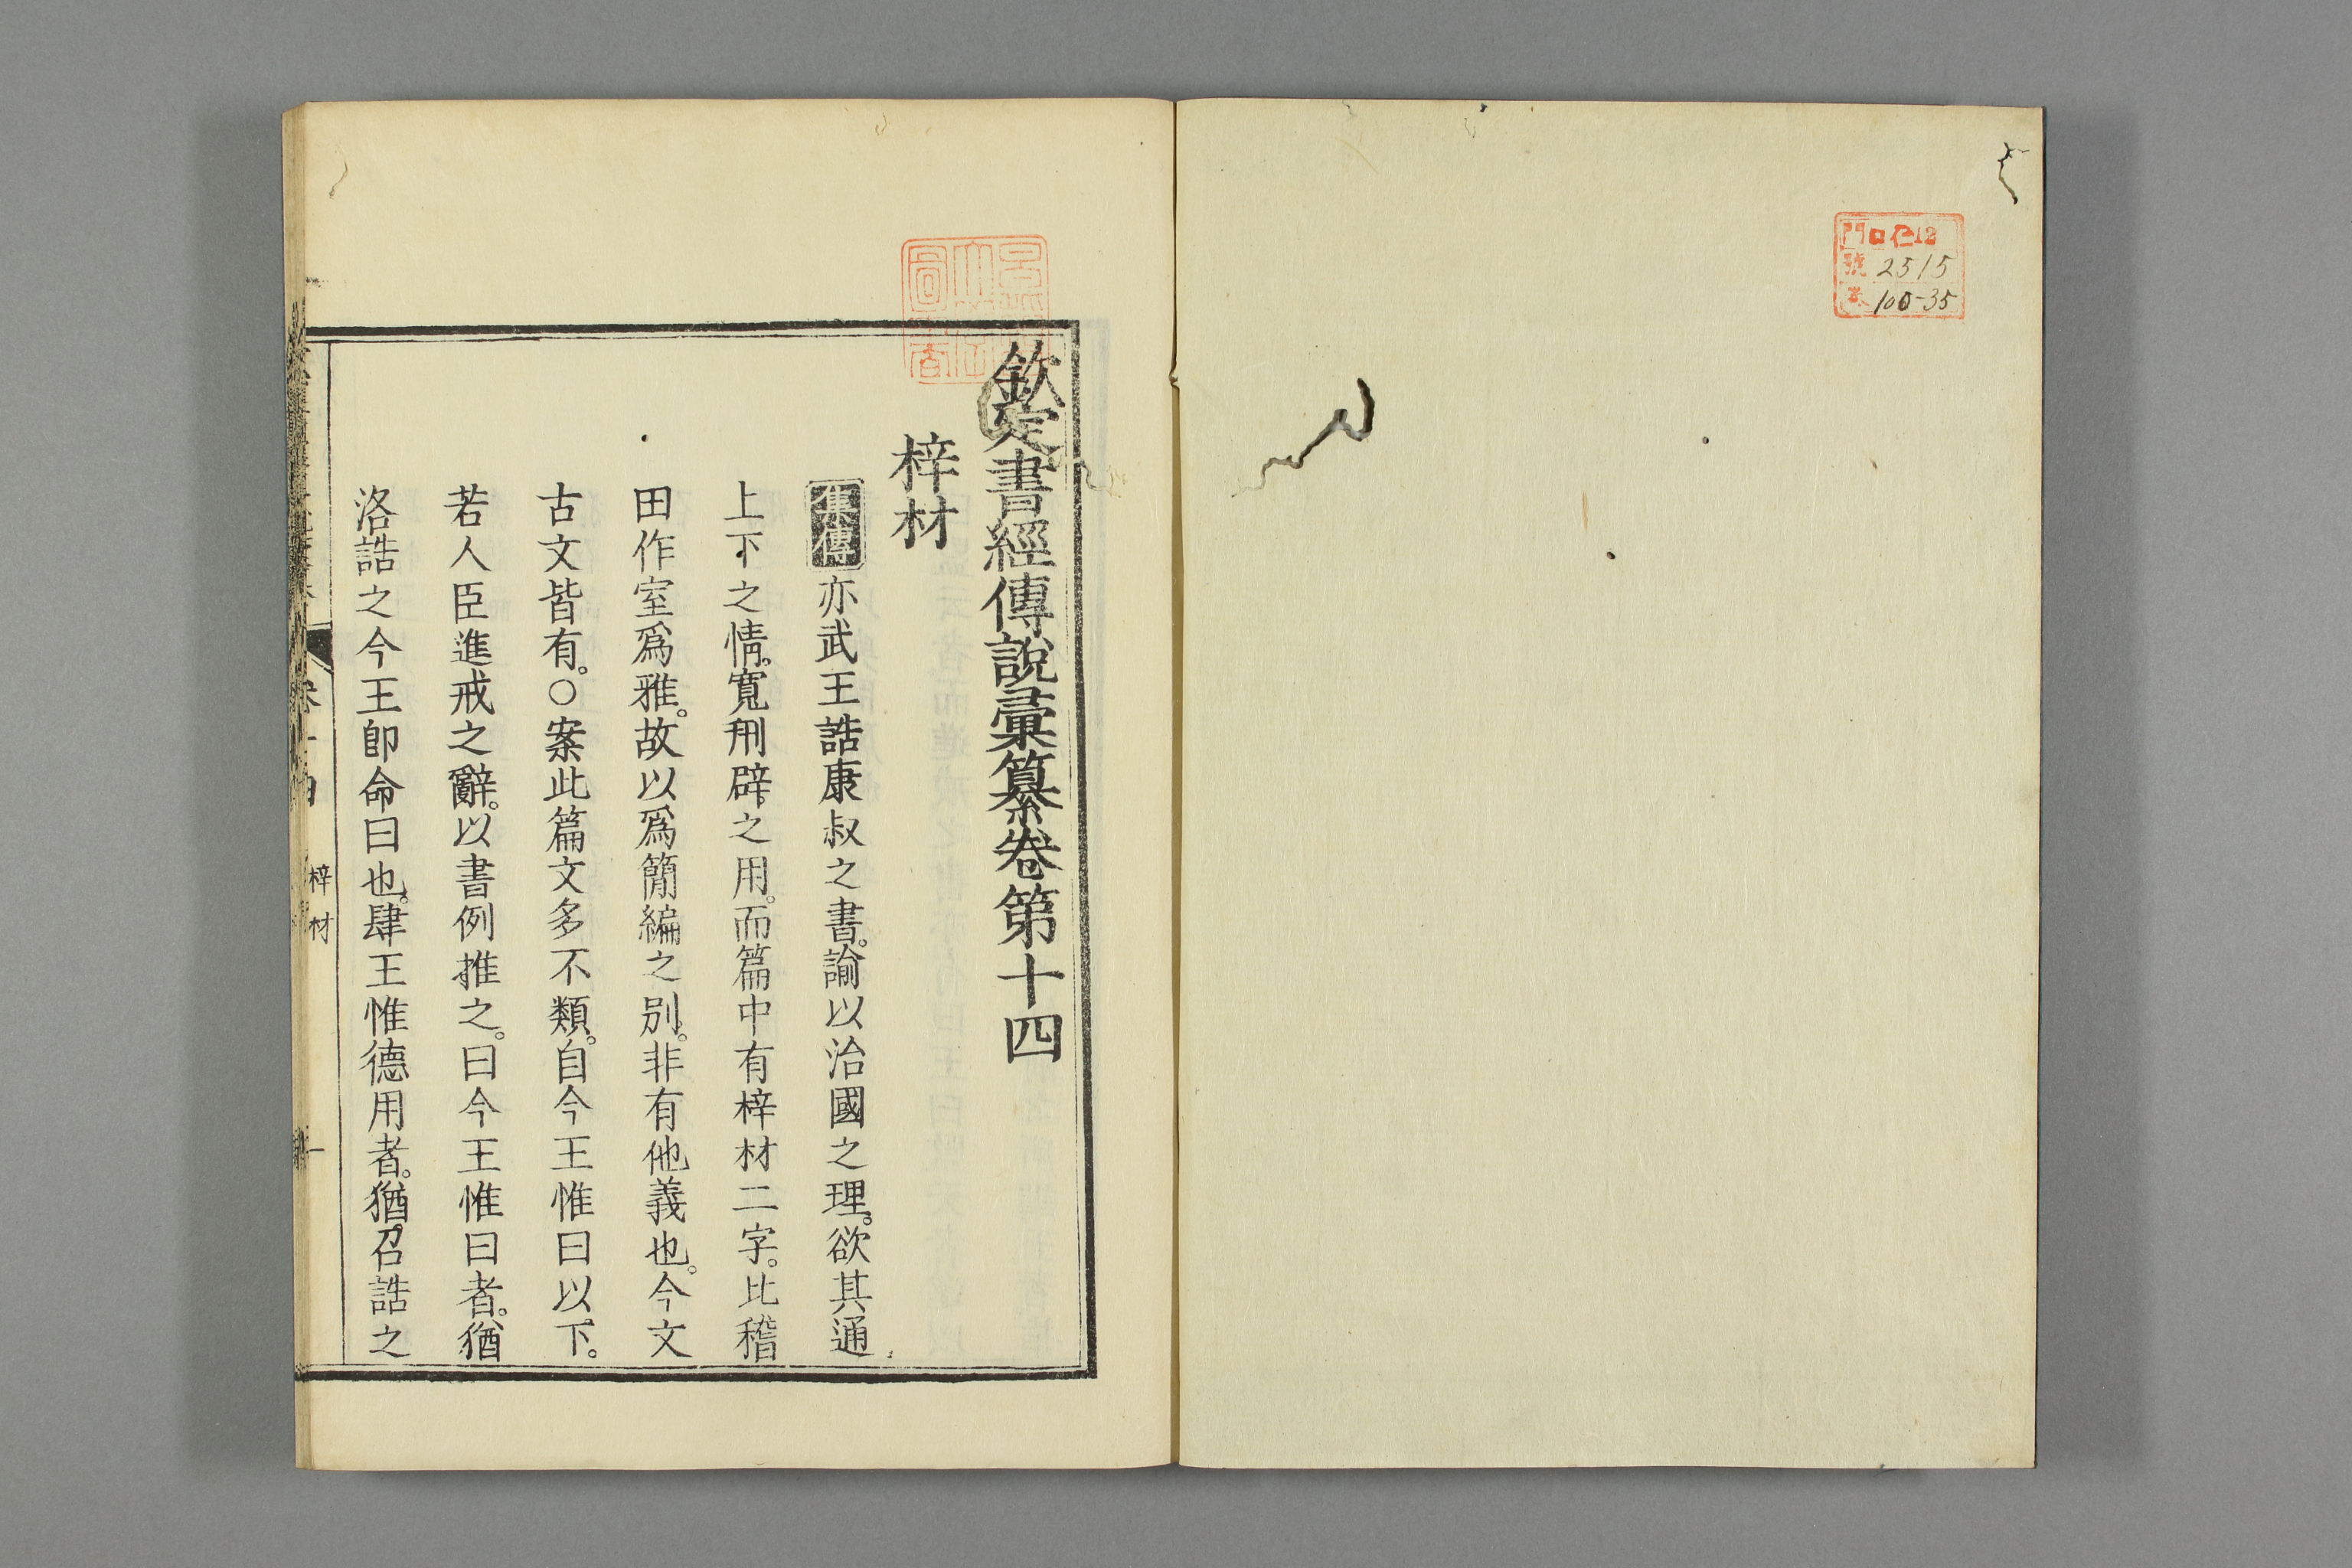 門 ロ仁12
號 2515
卷 100-35
欽定書經傳說彙纂卷第十四
梓材
集傳 亦武王誥康叔之書。諭以治國之理。欲其通
上下之情。寬刑辟之用。而篇中有梓材二字。比稽
田作室爲雅。故以爲簡編之別。非有他義也。今文
古文皆有。○案此篇文多不類。自今王惟曰以下。
若人臣進戒之辭。以書例推之。曰今王惟曰者。猶
洛誥之今王卽命曰也。肆王惟德用者。猶召誥之
卷十四 梓材 一